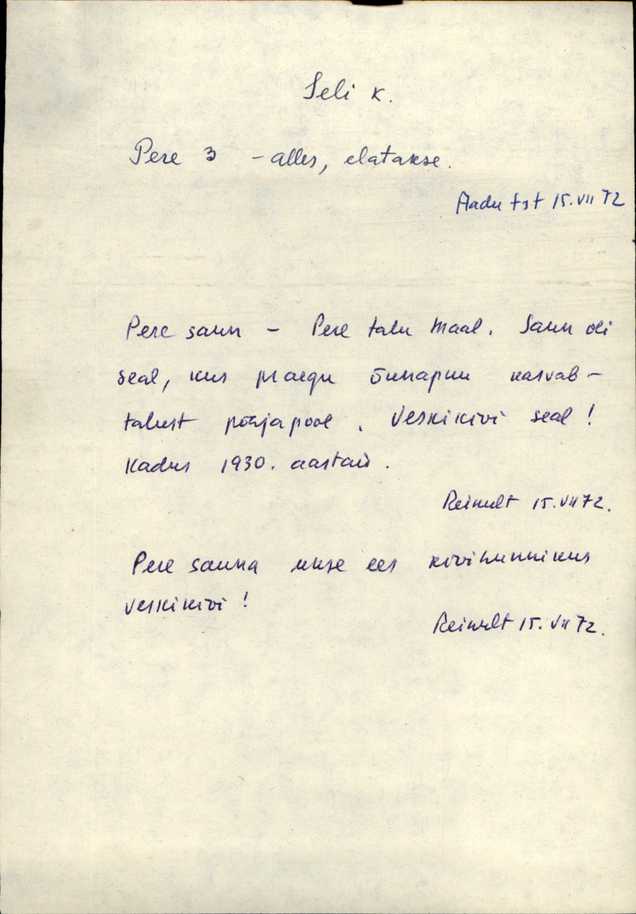 Seli k.
Pere 3 - alles, elatakse.
Aadu tst 15.VII 72
Pere saun - Pere talu maal. Saun oli
seal, kus praegu õunapuu kasvab -
talust põhjapool. Veskikivi seal!
Kadus 1930. aastail.
Reinult 15.VII 72.
Pere sauna ukse ees kivihunnikus
veskikivi!
Reinult 15.VII 72.